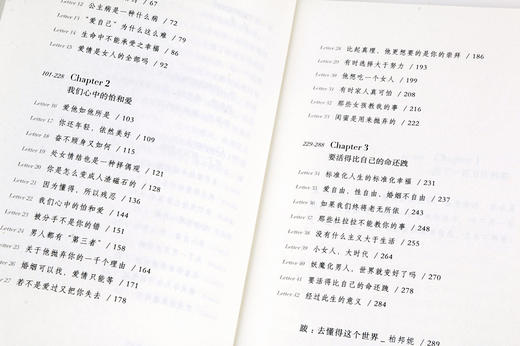 / 67
Letter 12 公主病是一种什么病 / 72
Letter 13 “爱自己”为什么这么难 / 79
Letter 14 生命中不能承受之幸福 / 86
Letter 15 爱情是女人的全部吗 / 92
101-228 Chapter 2
我们心中的怕和爱
Letter 16 爱他如他所是 / 103
Letter 17 你还年轻，依然美好 / 109
Letter 18 奋不顾身又如何 / 115
Letter 19 处女情结也是一种择偶观 / 121
Letter 20 你是怎么变成人渣磁石的 / 128
Letter 21 因为懂得，所以残忍 / 136
Letter 22 我们心中的怕和爱 / 144
Letter 23 被分手不是你的错 / 151
Letter 24 男人都有“第三者” / 158
Letter 25 关于他抛弃你的一千个理由 / 164
Letter 26 婚姻可以找，爱情只能等 / 171
Letter 27 若不是爱过又把你失去 / 178
Letter 28 比起真理，他更想要的是你的崇拜 / 186
Letter 29 有时选择大于努力 / 193
Letter 30 他想吃一个女人 / 199
Letter 31 有时家人真可怕 / 208
Letter 32 那些女孩教我的事 / 216
Letter 33 闺蜜是用来抛弃的 / 222
229-288 Chapter 3
要活得比自己的命还践
Letter 34 标准化人生的标准化幸福 / 231
Letter 35 爱自由、性自由、婚姻不自由 / 237
Letter 36 如果我们终将老无所依 / 243
Letter 37 那些杜拉拉不能教你的事 / 248
Letter 38 没有什么主义大于生活 / 255
Letter 39 小女人，大时代 / 264
Letter 40 妖魔化男人，世界就变好了吗 / 270
Letter 41 要活得比自己的命还践 / 278
Letter 42 经过此生的意义 / 284
跋：去懂得这个世界 _ 柏邦妮 / 289